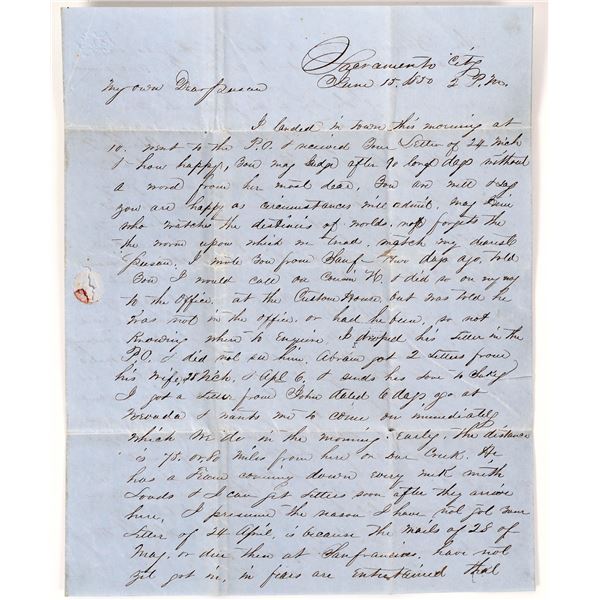 Sacramento City
June 15, 1850 2 P.M.
My own Dear Susan
I landed in town this morning at
10. went to the P.O. & received Your Letter of 24 Mch
& how happy, You may Judge after 90 long days without
a word from her most dear, You are well & say
you are happy as circumstances will admit, may
who watches the destinies of worlds, not forgets
the worm upon which we tread, watch my dearest
Susan, I wrote You from two days ago, told
You I would call on Cousin H, I did so on my way
to the Office, at the Custom House but was told he
was not in the office, or had he been, so not
Knowing where to Enquire, I droped his Letter in the
P.O. & did not see him, Abram got 2 Letters from
his Wife, 28 Mch, & Apl 6, & sends his love to
I got a Letter from John dated 6 days ago at
Nevada & wants me to come on immediately
which We do in the morning Early, the distance
is 75. or 80 miles from here on Deer Creek. He
has a Team coming down every week with
Loads & I can get Letters soon after they arrive
here, I presume the reason I have not got your
Letter of 24 April, is because the mails of 28 of
May, or due then at Sanfrancisco, have not
yet got in, in fears are Entertained that